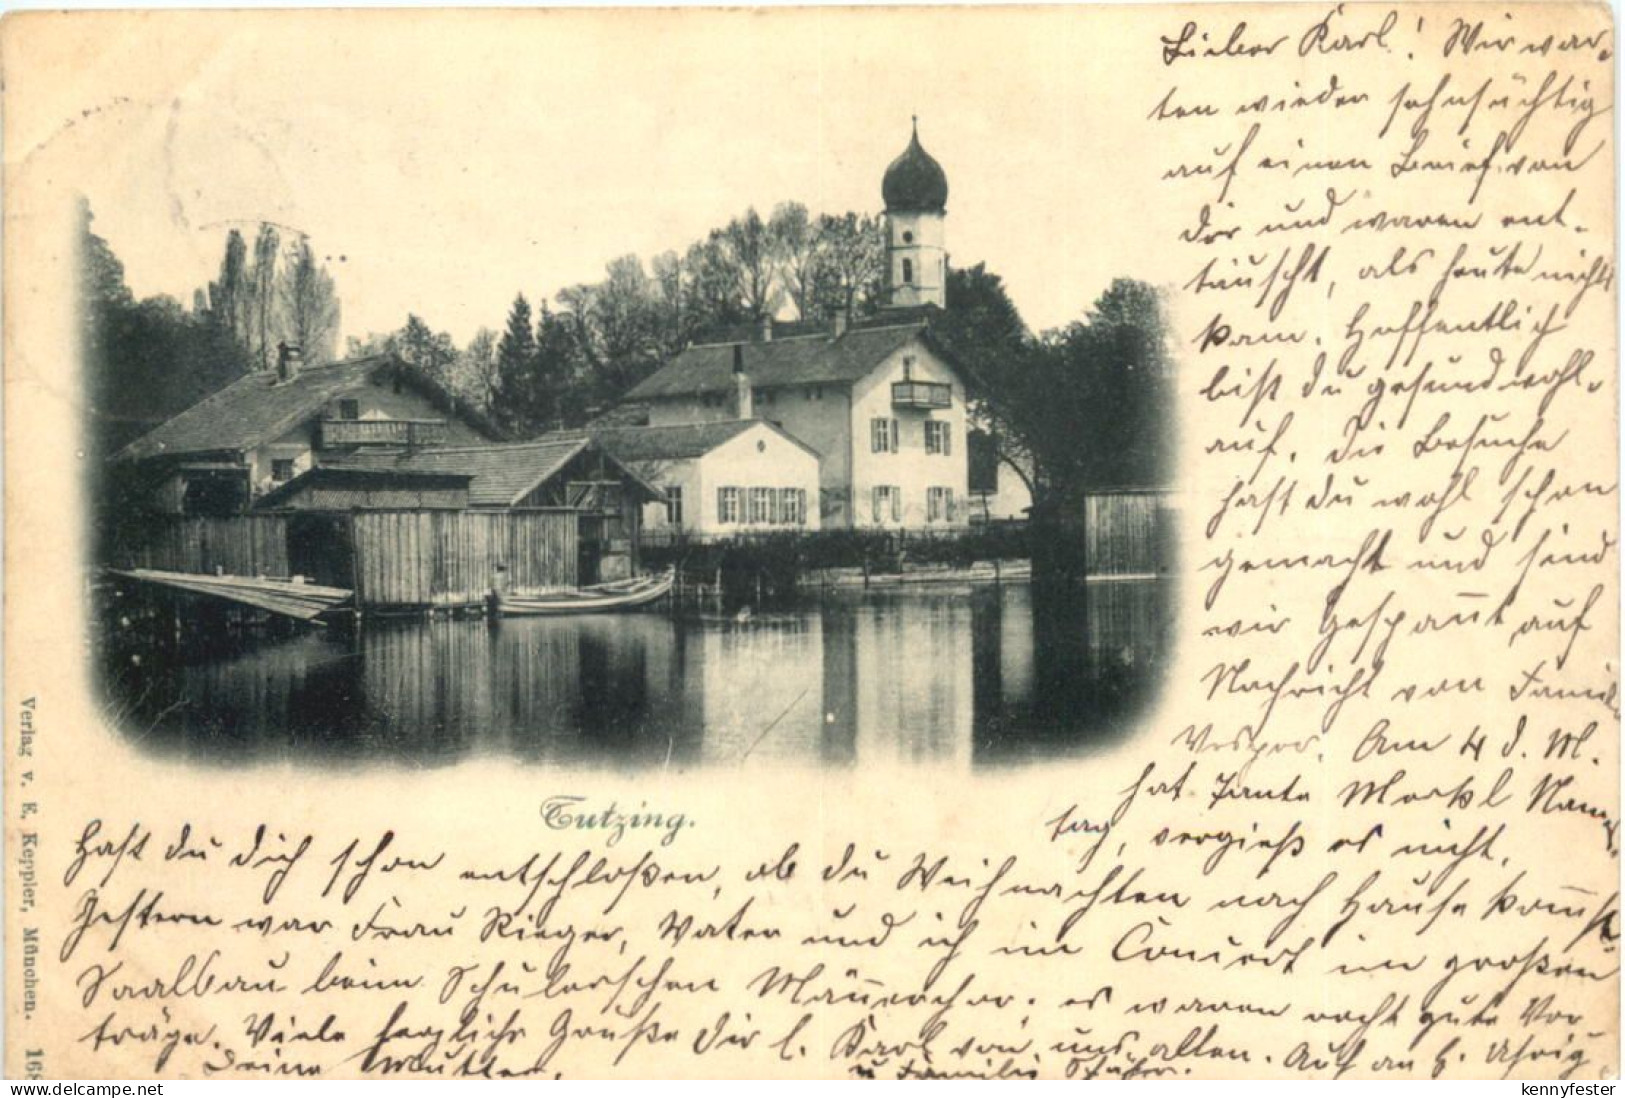 Lieber Karl! Wir war-
ten wieder sehnsüchtig
auf einen Brief von
dir und waren ent-
täuscht, als heute nicht
kam. Hoffentlich
bist du gesund wohl-
auf. Die Besuche
hast du wohl schon
gemacht und sind
wir gespan̄t auf
Nachricht von Famili
Vesper. Am 4 d. M.
hat Tante Merkl Nams
tag, vergieß es nicht.
Tutzing.
Hast du dich schon entschloßen, ob du Weihnachten nach Hause kom̄st.
Gestern war Frau Rieger, Vater und ich im Concert im großen
Saalbau beim Schülerschen Män̄erchor. es waren recht gute Vor
träge. Viele herzliche Grüße dir l. Karl von uns allen. Auch an H.
Deine Mutter.
u Familie
Verlag v. E. Keppler, München. 168
delcampe.net
kennyfester